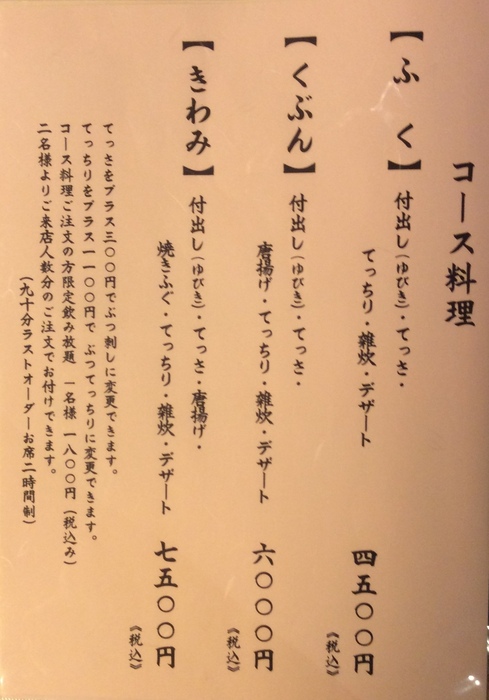 コース料理
【ふく】
付出し(ゆびき)・てっさ・
てっちり・雑炊・デザート
四五〇〇円
《税込》
【くぶん】
付出し(ゆびき)・てっさ・
唐揚げ・てっちり・雑炊・デザート
六〇〇〇円
《税込》
【きわみ】
付出し(ゆびき)・てっさ・唐揚げ・
焼きふぐ・てっちり・雑炊・デザート
七五〇〇円
《税込》
てっさをプラス三〇〇円でぶつ刺しに変更できます。
てっちりをプラス一一〇〇円で ぶつてっちりに変更できます。
コース料理ご注文の方限定飲み放題 一名様 一八〇〇円(税込み)
二名様よりご来店人数分のご注文でお付けできます。
(九十分ラストオーダーお席二時間制)